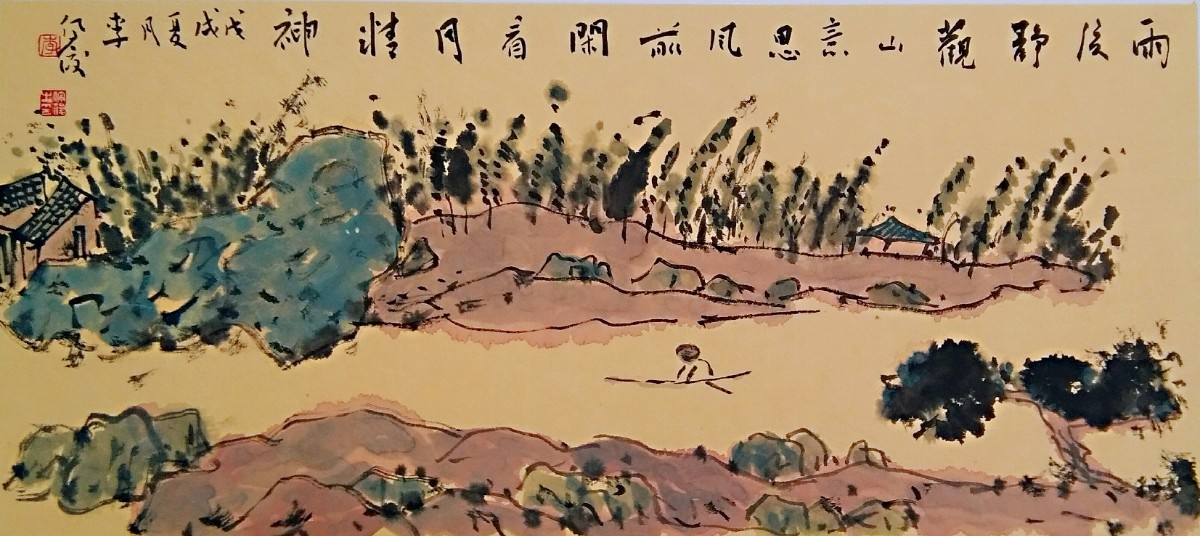 雨後靜觀山意思風前閑看月精神
戊戌夏月李